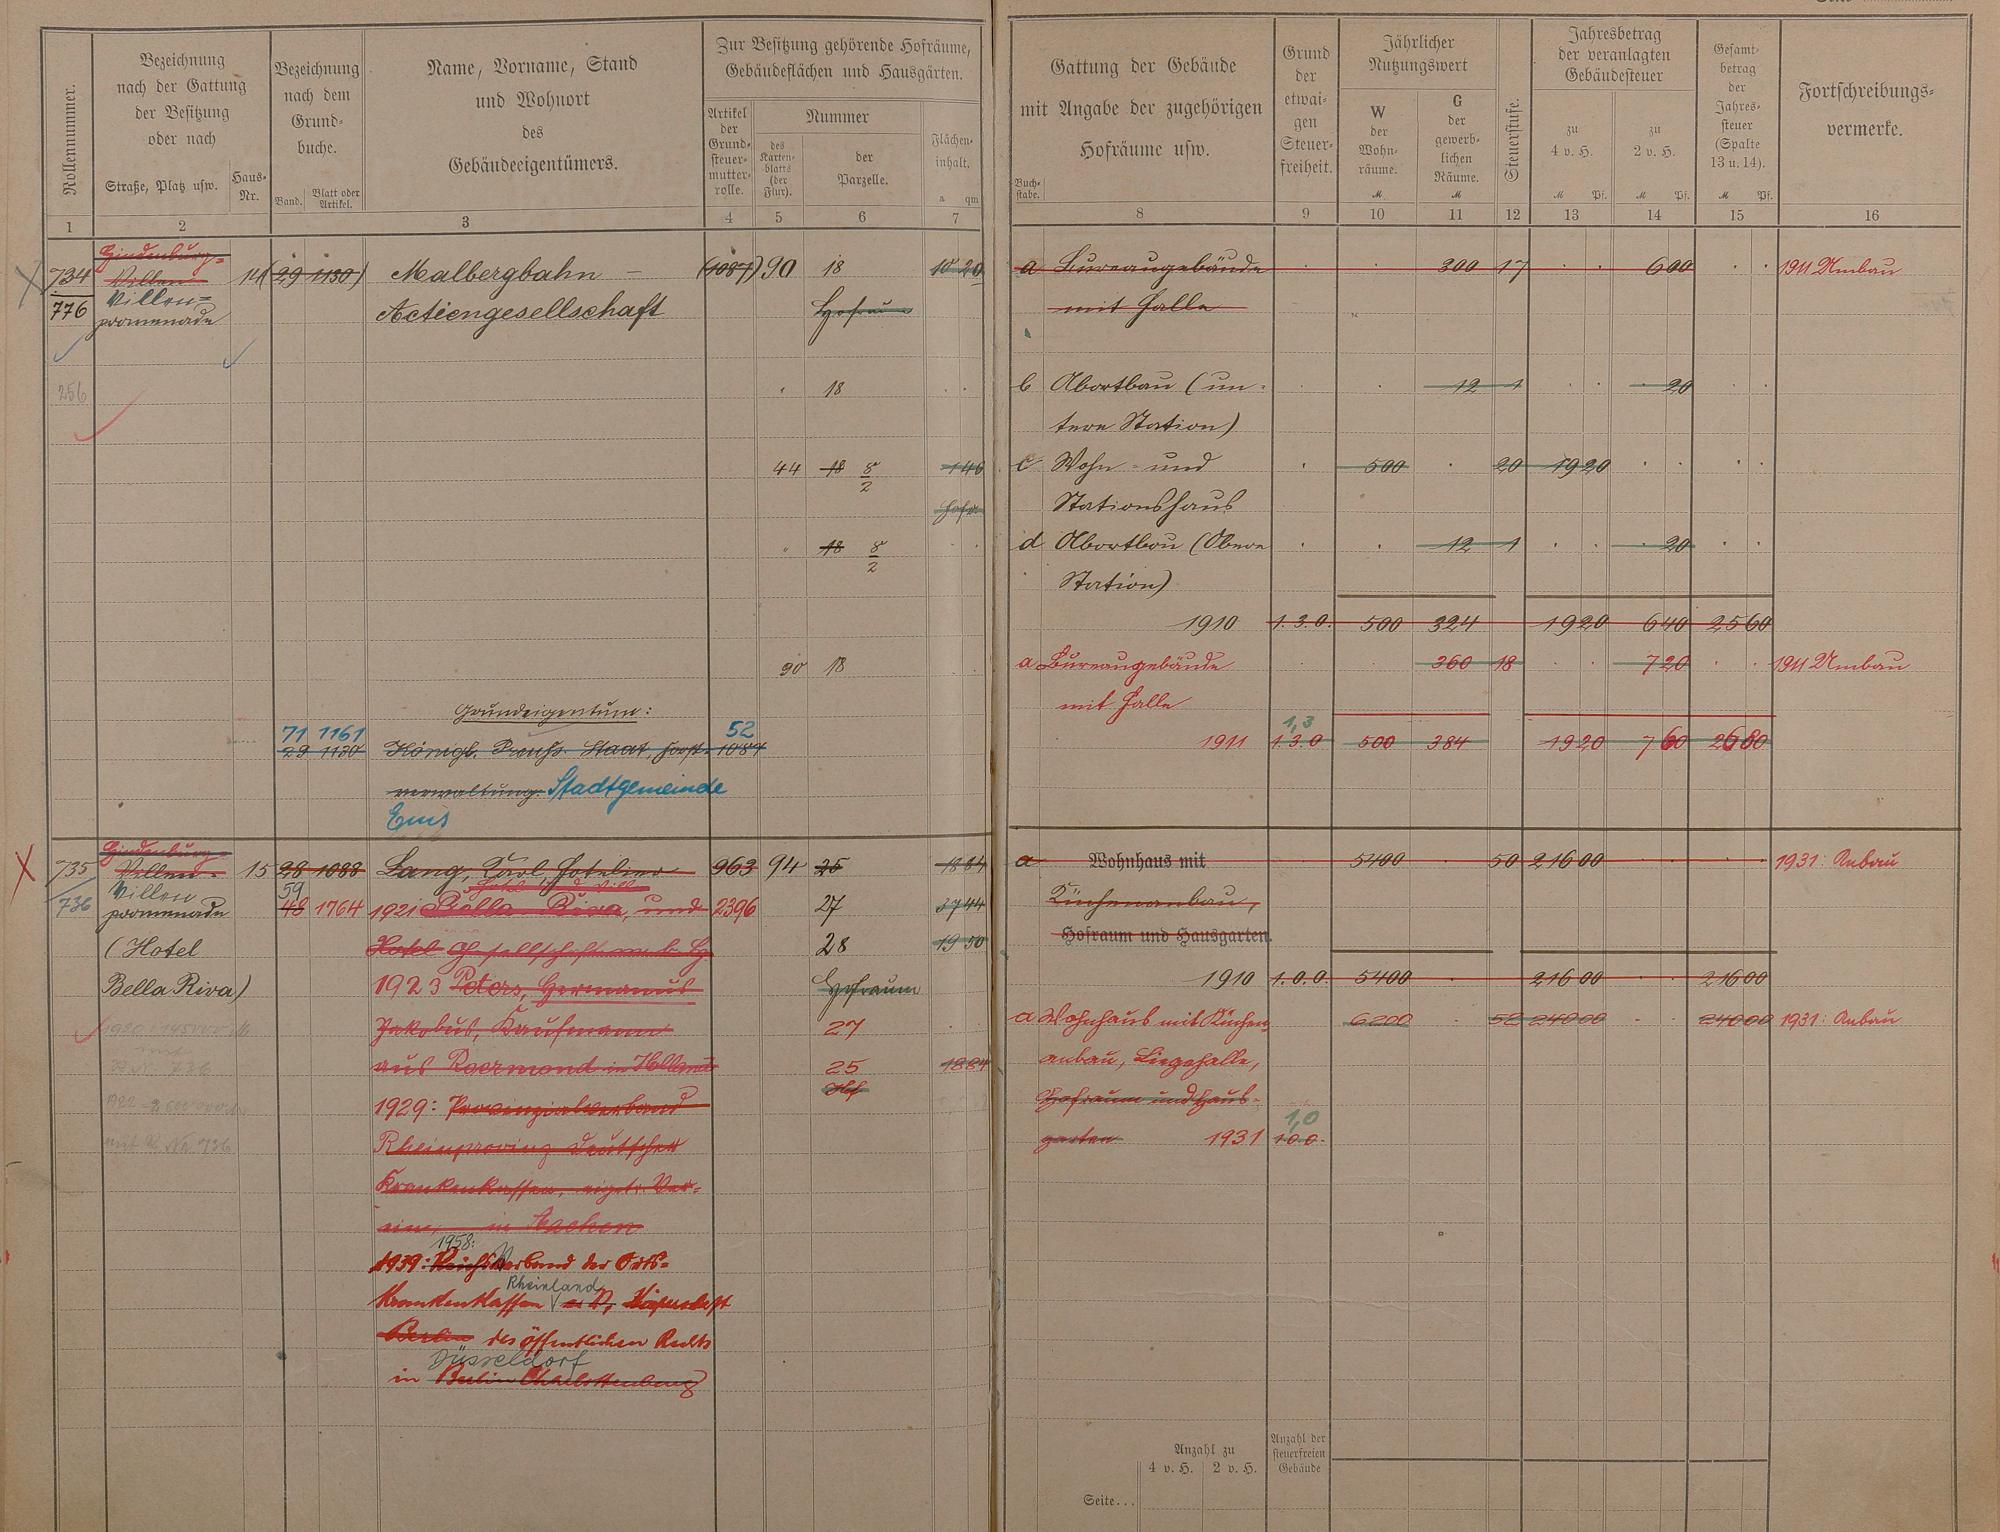 Rollennummer.
Bezeichnung
nach der Gattung
der Besitzung
oder nach
Straße, Platz usw.
Haus-
Nr.
Bezeichnung
nach dem
Grund-
buche.
Band.
Blatt oder
Artikel.
Name, Vorname, Stand
und Wohnort
des
Gebäudeeigentümers.
Zur Besitzung gehörende Hofräume,
Gebäudeflächen und Hausgärten.
Artikel
der
Grund-
steuer-
mutter-
rolle.
Nummer
des
Karten-
blatts
(der
Flur).
der
Parzelle.
Flächen-
inhalt.
a qm
1 2 3 4 5 6 7
Hindenburg-
734 Villen- 14 (29 1130) Malbergbahn - (1087) 90 18 10 20
Villen-
776 promenade Actiengesellschaft Hofraum
256 18
44 18 8/2 1 46
Hofr
18 8/2
90 18
Grundeigentum:
71 1161 52
29 1130 Königl. Preuß. Staat, Forst- 1087
verwaltung. Stadtgemeinde
Ems
Hindenburg-
735 Villen- 15 28 1088 Lang, Carl, Hotelier 963 94 25 18 84
736 Villen 59
promenade 48 1764 1921 Bella Riva, und 2396 27 37 44
(Hotel Hotel Gesellschaft m. b. H. 28 19 50
Bella Riva) 1923 Peters, Hermanus Hofraum
Jakobus, Kaufmann 27
aus Roermond in Holland 25 18 84
Hf
1929: Provinzialverband
Rheinprovinz Deutscher
Krankenkassen, eigetr. Ver-
ein, in Aachen
1958:
1939: Reichsverband der Orts-
Rheinland
Krankenkassen e. V., Körperschaft
Berlin des öffentlichen Rechts
Düsseldorf
in Berlin Charlottenburg
mit R. No 736
Gattung der Gebäude
mit Angabe der zugehörigen
Hofräume usw.
Buch-
stabe.
Grund
der
etwai-
gen
Steuer-
freiheit.
Jährlicher
Nutzungswert
W
der
Wohn-
räume.
M
G
der
gewerb-
lichen
Räume.
M
Steuerstufe.
Jahresbetrag
der veranlagten
Gebäudesteuer
zu
4 v. H.
M Pf.
zu
2 v. H.
M Pf.
Gesamt-
betrag
der
Jahres-
steuer
(Spalte
13 u. 14).
M Pf.
Fortschreibungs-
vermerke.
8 9 10 11 12 13 14 15 16
a Bureaugebäude 300 17 6 00 1911 Umbau
mit Halle
b Abortbau (un- 12 1 20
tere Station)
c Wohn- und 500 20 19 20
Stationshaus
d Abortbau (Obere 12 1 20
Station)
1910 1.3.0. 500 324 19 20 6 40 25 60
a Bureaugebäude 360 18 7 20 1911 Umbau
mit Halle
1,3
1911 1.3.0 500 384 19 20 7 60 26 80
a Wohnhaus mit 5400 50 216 00 1931: Anbau
Küchenanbau,
Hofraum und Hausgarten.
1910 1.0.0. 5400 216 00 216 00
a Wohnhaus mit Küchen- 6200 52 240 00 240 00 1931: Anbau
anbau, Liegehalle,
Hofraum und Haus-
1,0
garten 1931 1.0.0.
Anzahl zu
4 v. H. 2 v. H.
Anzahl der
steuerfreien
Gebäude
Seite...